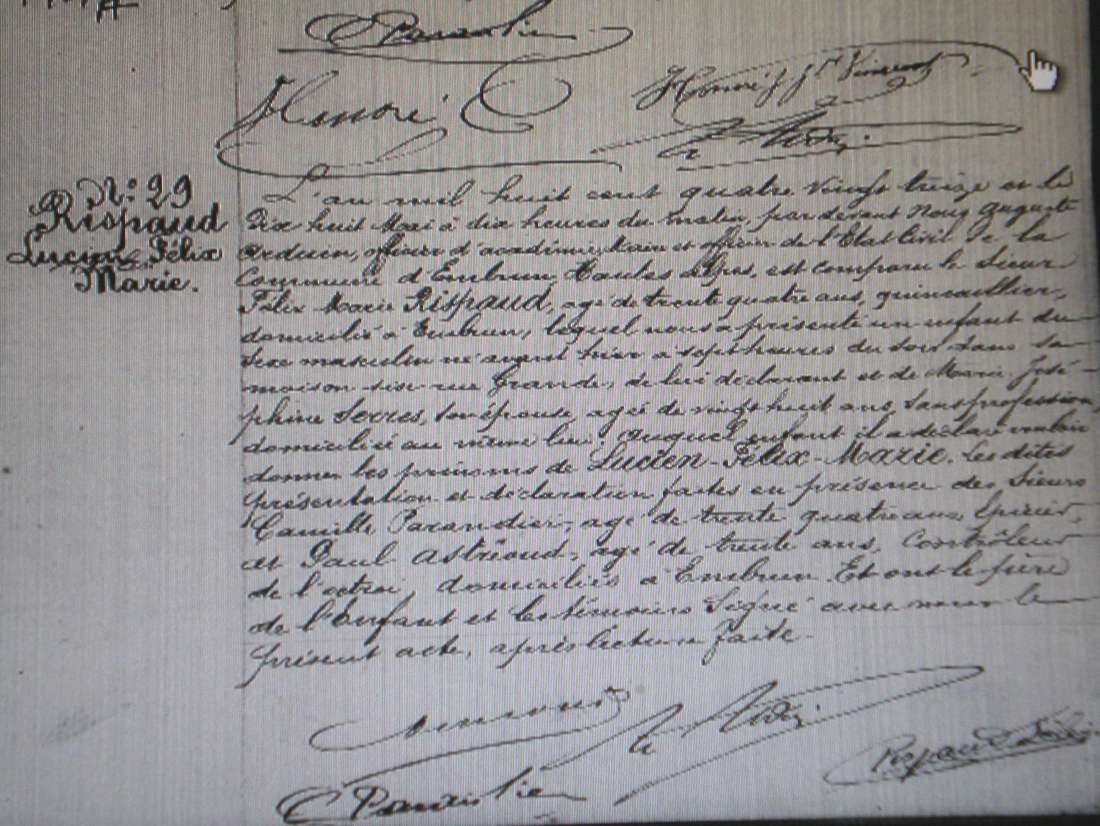 C Parandier
Honoré
Honoré J. Vincent
N°: 29
Rispaud
Lucien, Félix
Marie.
L'an mil huit cent quatre vingt treize et le
Dix huit Mars à dix heures du matin, par devant Nous Auguste
officier d'académie, Maire et officier de l'Etat Civil de la
Commune d'Embrun, Hautes Alpes, est comparu le Sieur
Félix Marie Rispaud, agé de trente quatre ans, quincaillier,
domicilié à Embrun, lequel nous a présenté un enfant du
sexe masculin né avant hier à sept heures du soir dans sa
maison sise rue Grande, de lui déclarant et de Marie José-
phine Serres, son épouse, agée de vingt huit ans, sans profession,
domiciliée au même lieu, auquel enfant il a déclaré vouloir
donner les prénoms de Lucien-Félix-Marie. Les dites
présentation et déclaration faites en présence des Sieurs
Camille Parandier, agé de trente quatre ans, Epicier,
et Paul Astrioud, agé de trente ans, Contrôleur
de l'octroi, domiciliés à Embrun. Et ont le père
de l'Enfant et les témoins Signé avec nous le
présent acte, après lecture faite.
C Parandier
Rispaud